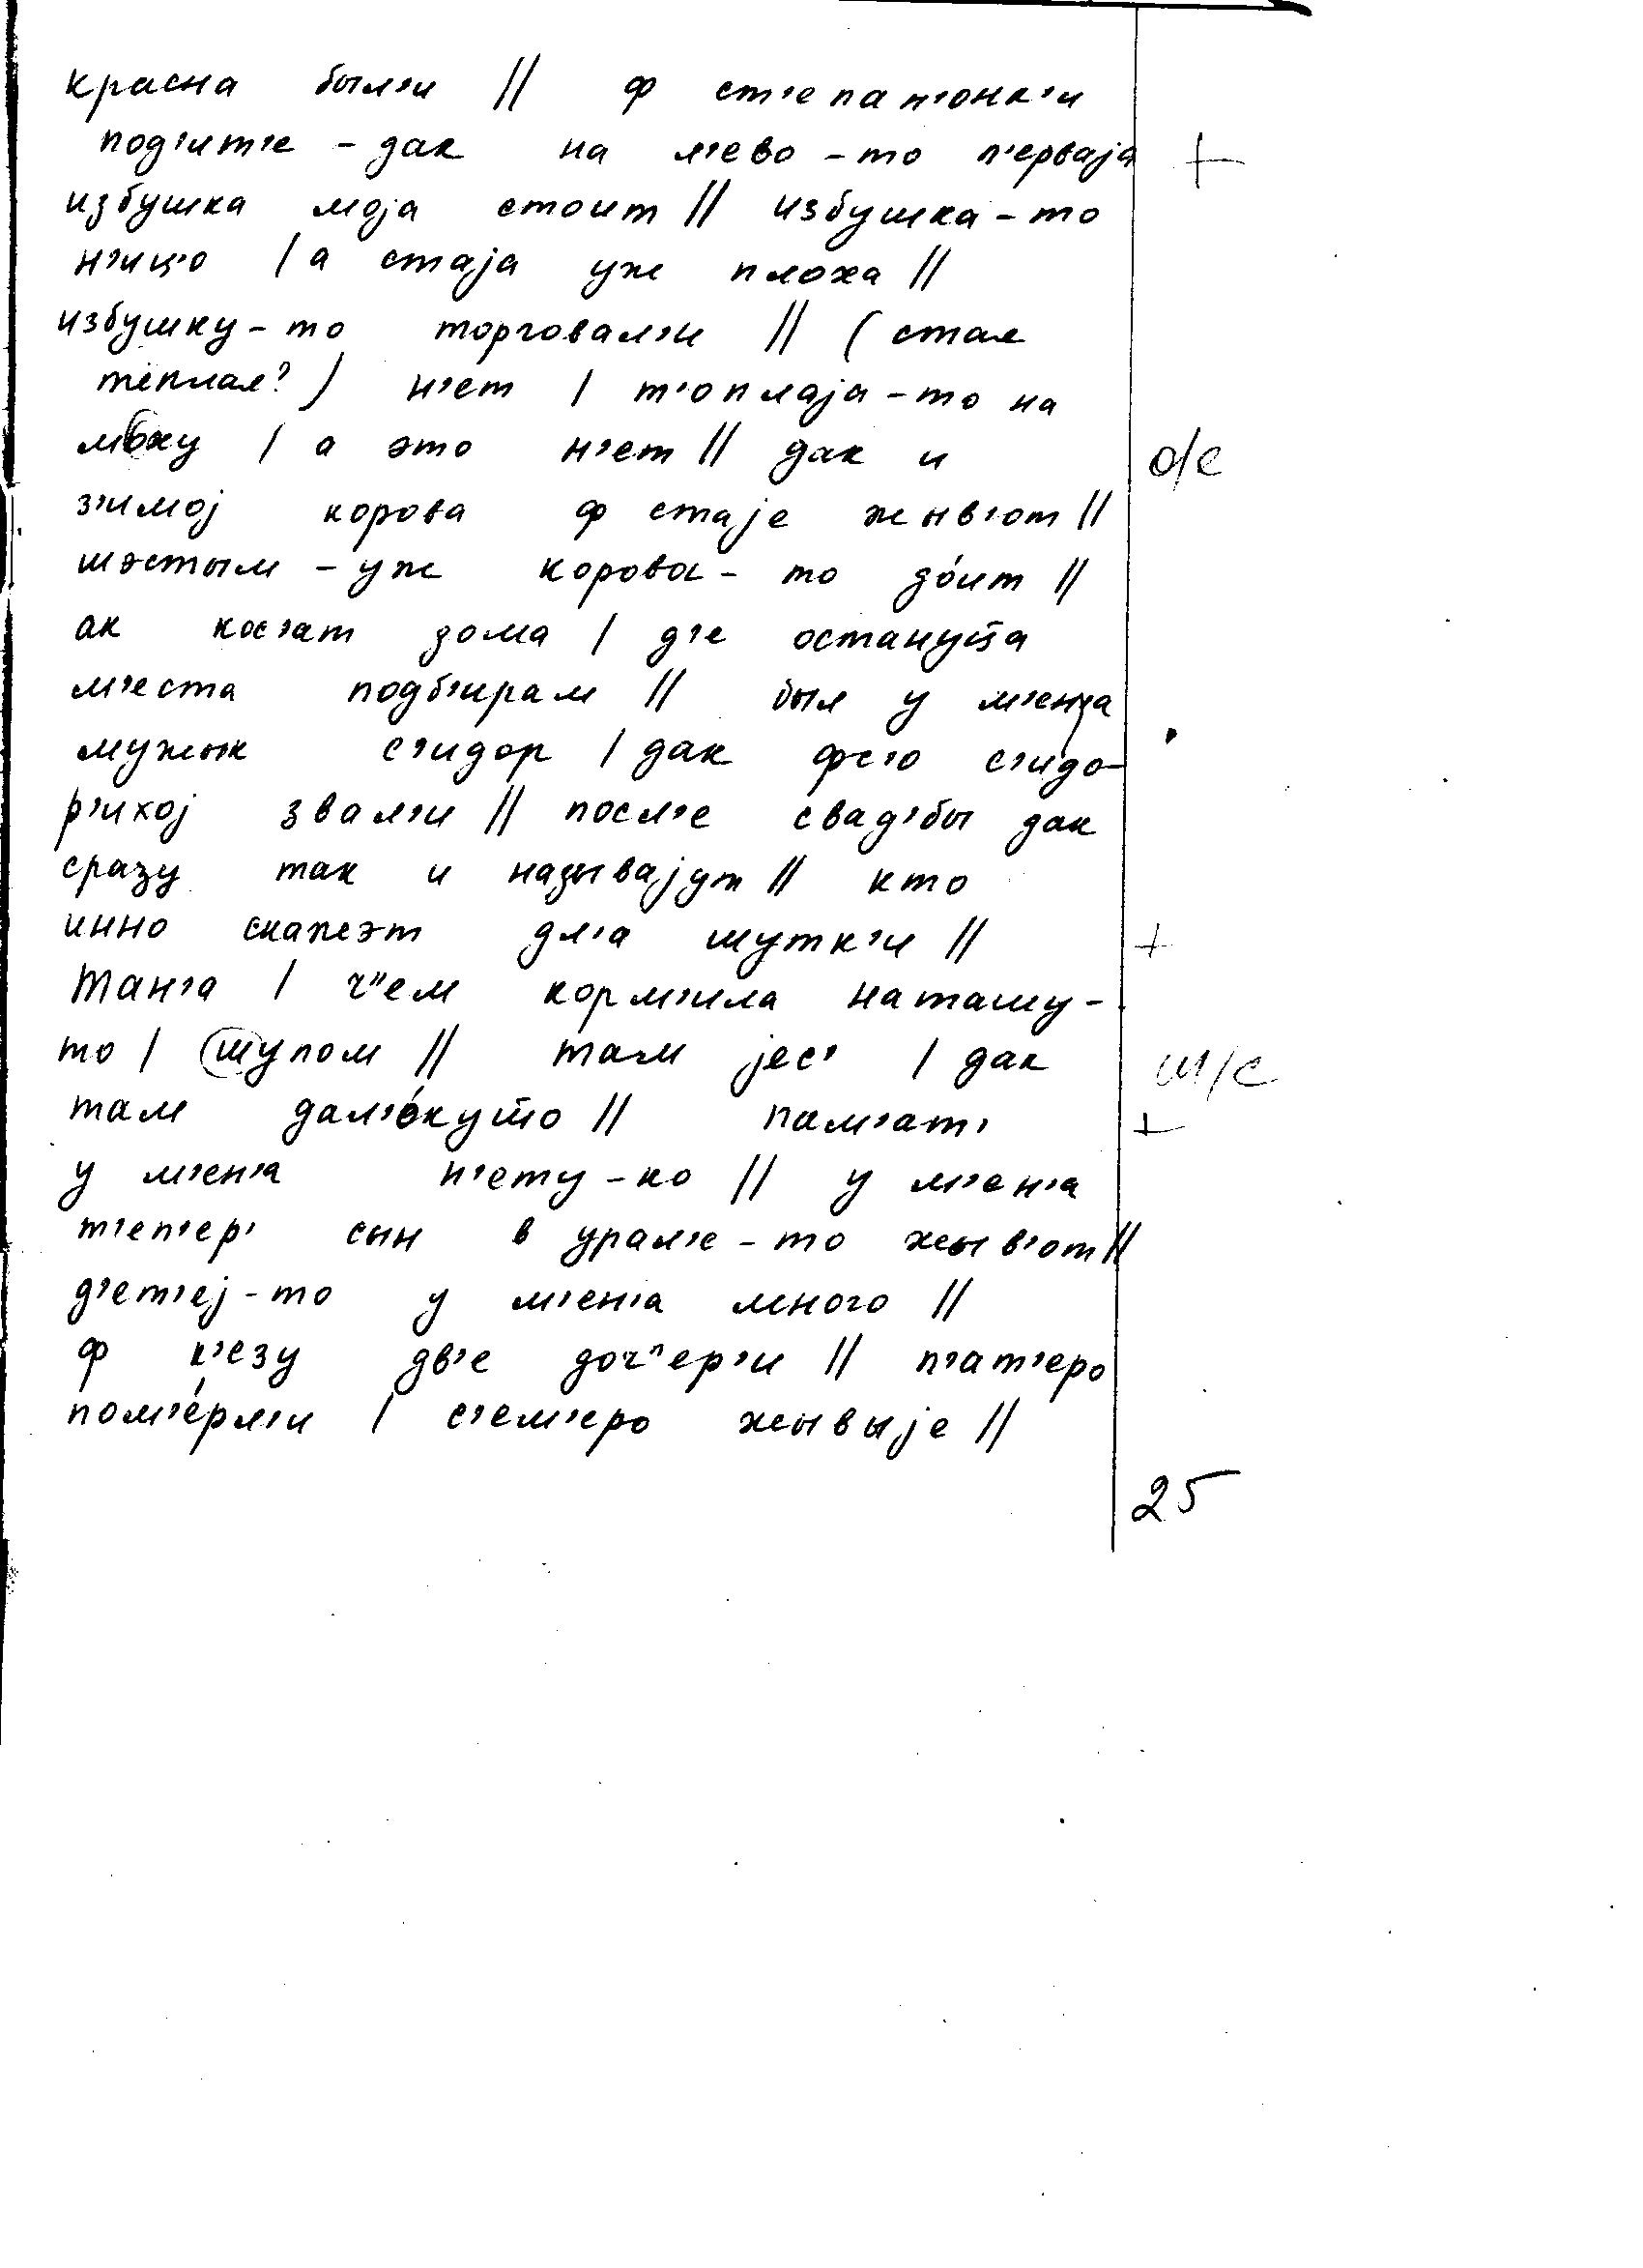 красна был'и // ф ст'епан'онк'и
под'ит'е - дак на л'ево - то п'ерваја +
избушка моја стоит // избушка - то
н'иц'о / а стаја уж плоха //
избушку - то торговал'и // ( стая
теплая? ) н'ет / т'оплаја - то на
моху / а это н'ет // дак и о/с
з'имој корова ф стаје жыв'от //
шэстым - уж корова - то до́ит //
ак кос'ат дома / д'е остануц̄а
м'еста подб'ирам // был у м'ен'а
мужык с'идор / дак фс'о с'идо-
р'ихој звал'и // посл'е свад'бы дак
сразу так и называјут //  кто
инно скажэт дл'а шутк'и // +
Тан'а / ч"ем корм'ила наташу -
то / шупом // там јес' / дак ш/с
там дал'о́куто // пам'ат' +
у м'ен'а н'ету - ко // у м'ен'а
т'еп'ер' сын в урал'е - то жыв'от //
д'ет'еј - то у м'ен'а много //
ф к'езу дв'е доч"ер'и // п'ат'еро
пом'е́рл'и / с'ем'еро жывыје //
25